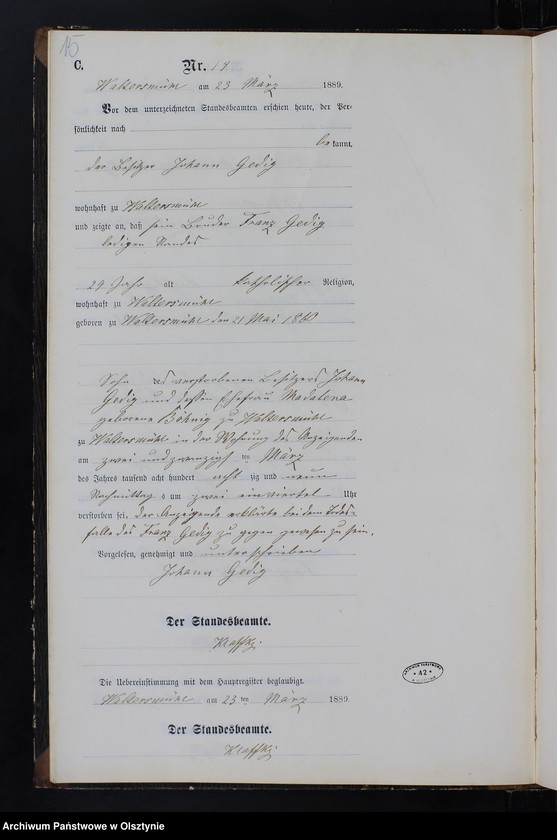 15
C.
Nr. 17
Waltersmühl am 23 März 1889.
Vor dem unterzeichneten Standesbeamten erschien heute, der Per=
sönlichkeit nach
bekannt,
der Besitzer Johann Gedig
wohnhaft zu Waltersmühl
und zeigte an, daß sein Bruder Franz Gedig
ledigen Standes
29 Jahr alt katholischer Religion,
wohnhaft zu Waltersmühl
geboren zu Waltersmühl den 21 Mai 1860
Sohn des verstorbenen Besitzers Johann
Gedig und dessen Ehefrau Madalena
geborene Böhnig zu Waltersmühl
zu Waltersmühl in der Wohnung des Anzeigenden
am zwei und zwanzigsten März
des Jahres tausend acht hundert achtzig und neun
Nachmittags um zwei einviertel Uhr
verstorben sei, der Anzeigende erklärte bei dem Todes=
falle des Franz Gedig zu gegen gewesen zu sein.
Vorgelesen, genehmigt und unterschrieben
Johann Gedig
Der Standesbeamte.
Die Uebereinstimmung mit dem Hauptregister beglaubigt.
Waltersmühl am 23ten März 1889
Der Standesbeamte.
42
Archiwum Państwowe w Olsztynie